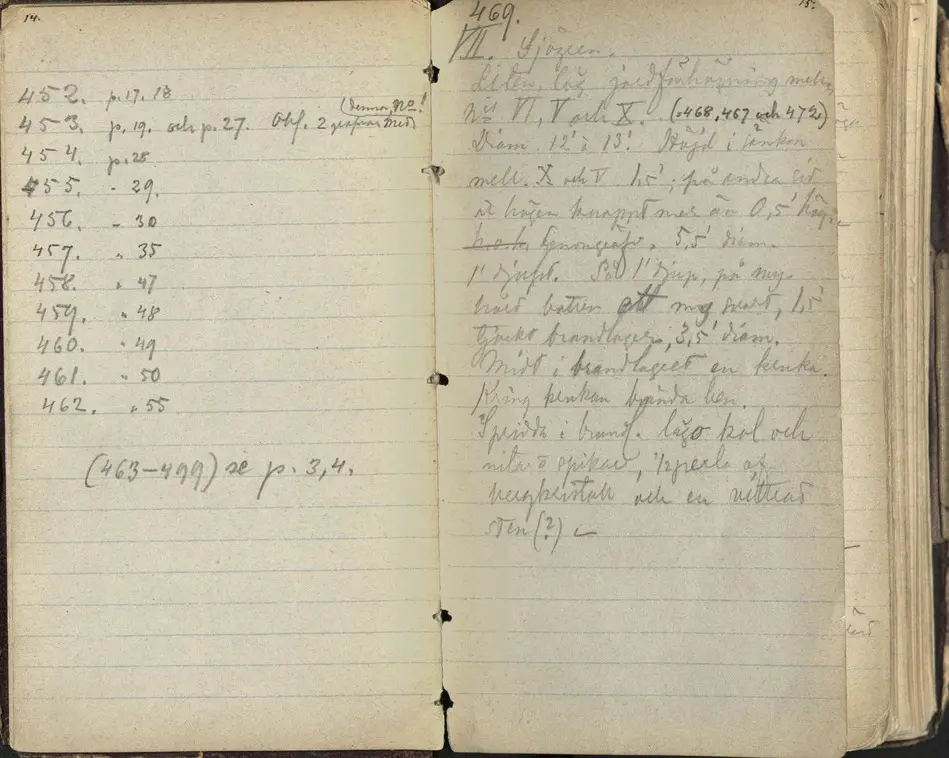 14.
452. p. 17. 18
(denna No!
453. p. 19. och p. 27. Obs. 2 grafvar med
454. p. 28
455. " 29.
456. " 30
457. " 35
458. " 47
459. " 48
460. " 49
461. " 50
462. " 55
(463–499) se p. 3, 4.
15.
469.
VII. Sjögren.
Liten, låg jordförhöjning mell.
No VI, V och X. (468, 467 och 472)
Diam. 12' à 13'. Höjd i sänkan
mell. X och V 1,5'; på andra sid
är högen knappt mer än 0,5' hög.
Genomgräfv. 5,5' diam.
1' djupt. På 1' djup, på my.
hård botten ett my svart, 1,5'
tjockt brandlager, 3,5' diam.
Midt i brandlagret en kruka.
Kring krukan brända ben.
Spridda i brandl. lågo kol och
nitar o spikar, 1/2 perla af
bergkristall och en vittrad
sten (?)